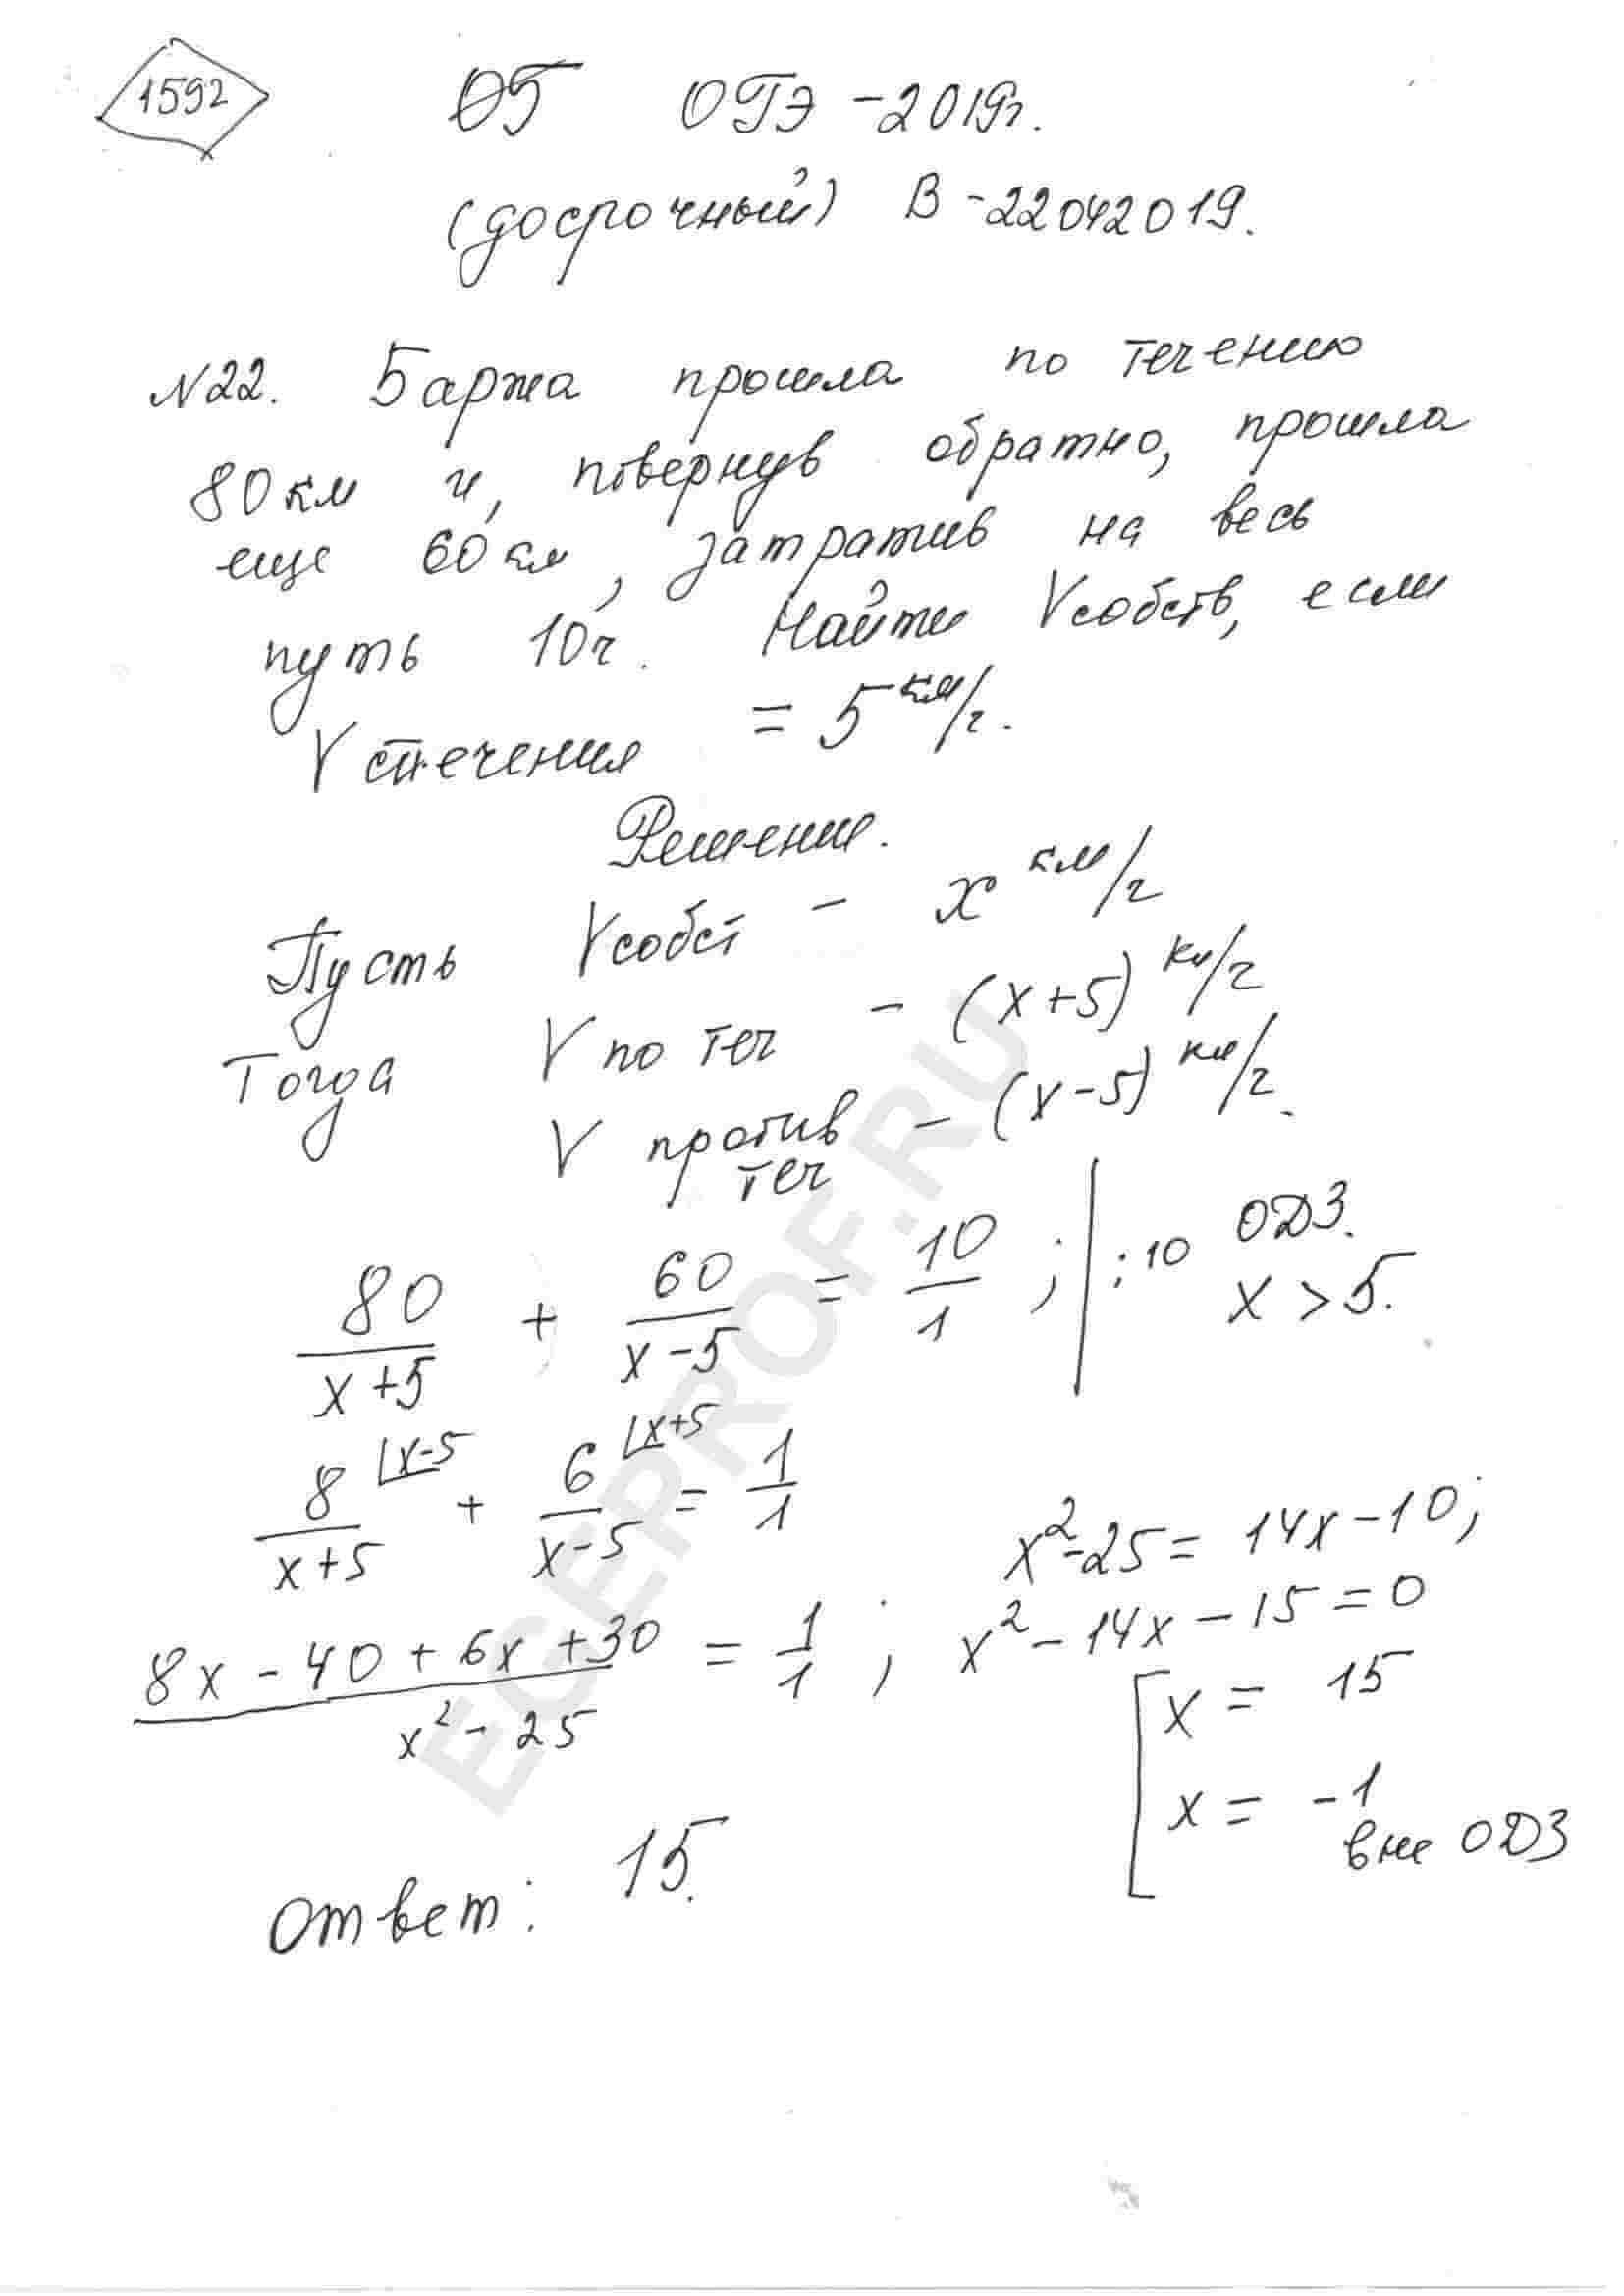 1592
05 ОГЭ - 2019г.
(досрочный) В - 22042019.
N22. Баржа прошла по течению
80 км и, повернув обратно, прошла
еще 60 км, затратив на весь
путь 10ч. Найти Vсобств, если
V течения = 5 км/ч.
Решение.
Пусть Vсобст - x км/ч
Тогда V по теч - (x+5) км/ч
V против теч - (x-5) км/ч.
80/(x+5) + 60/(x-5) = 10/1 ; | :10 ОДЗ. x > 5.
8 ⌊x-5/(x+5) + 6 ⌊x+5/(x-5) = 1/1
(8x - 40 + 6x + 30)/(x² - 25) = 1/1 ;
x² - 25 = 14x - 10;
x² - 14x - 15 = 0
[ x = 15
x = -1
вне ОДЗ
Ответ: 15.
EGEPROF.RU